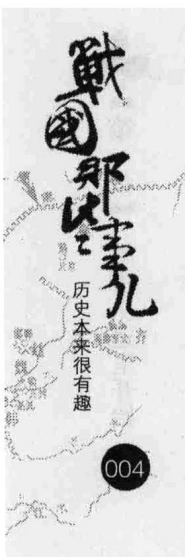 戰國那些事儿
历史本来很有趣
004